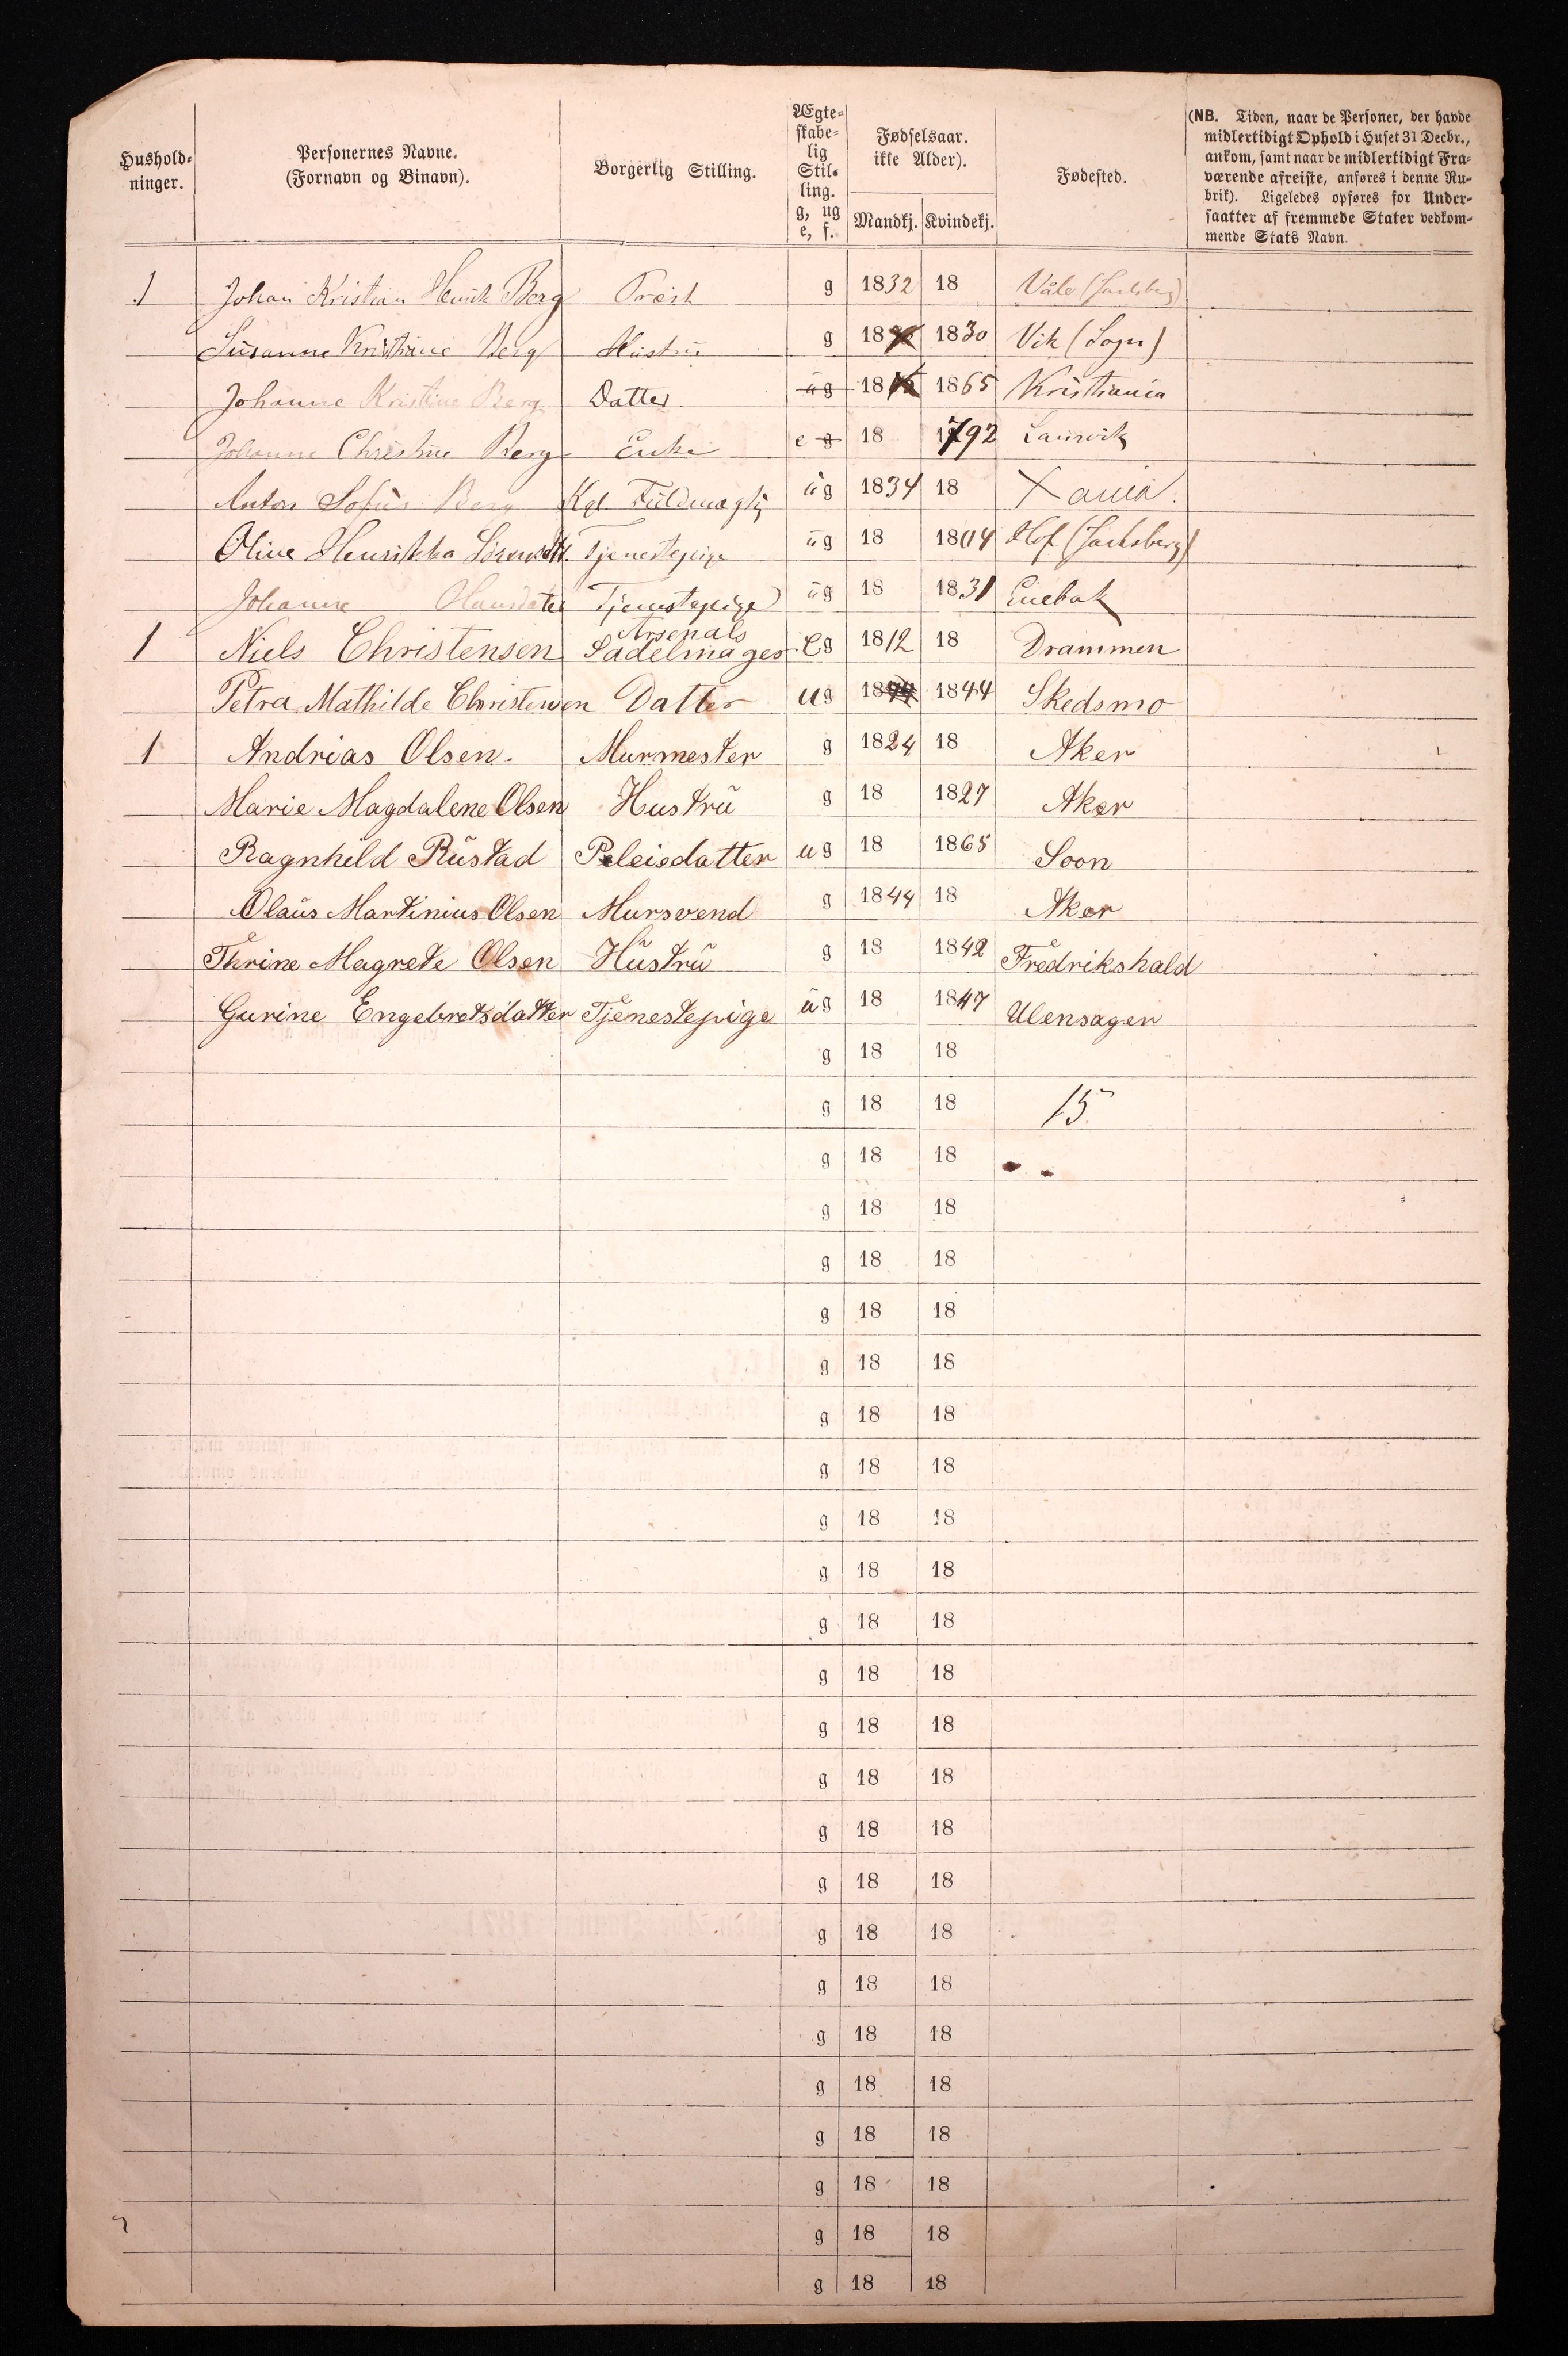 Hushold-
ninger.
Personernes Navne.
(Fornavn og Binavn).
Borgerlig Stilling.
Ægte-
skabe-
lig
Stil-
ling.
g, ug
e, f.
Fødselsaar.
ikke Alder).
Mandkj. Kvindekj.
Fødested.
(NB. Tiden, naar de Personer, der havde
midlertidigt Ophold i Huset 31 Decbr.,
ankom, samt naar de midlertidigt Fra-
værende afreiste, anføres i denne Ru-
brik). Ligeledes opføres for Under-
saatter af fremmede Stater vedkom-
mende Stats Navn.
1 Johan Kristian Henrik Berg Præst g 1832 18 Våle (Jarlsberg)
Susanne Kristiane Berg Hustru g 18 1830 Vik (Sogn)
Johanne Kristine Berg Datter ug 18 1865 Kristiania
Johanne Christine Berg Enke e g 18 1792 Laurvik
Anton Sofus Berg Kgl. Fuldmægtig ug 1834 18 Xania.
Olive Henrikka Tjenestepige ug 18 1804 Hof (Jarlsberg)
Johanne Hansdatter Tjenestepige ug 18 1831 Enebak
1 Niels Christensen Arsenals Sadelmager eg 1812 18 Drammen
Petra Mathilde Christensen Datter ug 1844 1844 Skedsmo
1 Andrias Olsen. Murmester g 1824 18 Aker
Marie Magdalene Olsen Hustru g 18 1827 Aker
Ragnhild Rustad Pleiedatter ug 18 1865 Soon
Olaus Martinius Olsen Mursvend g 1844 18 Aker
Thrine Magrete Olsen Hustru g 18 1842 Fredrikshald
Gurine Engebretsdatter Tjenestepige ug 18 1847 Ulensager
g 18 18
g 18 18 15
g 18 18
g 18 18
g 18 18
g 18 18
g 18 18
g 18 18
g 18 18
g 18 18
g 18 18
g 18 18
g 18 18
g 18 18
g 18 18
g 18 18
g 18 18
g 18 18
g 18 18
g 18 18
g 18 18
g 18 18
g 18 18
g 18 18
g 18 18